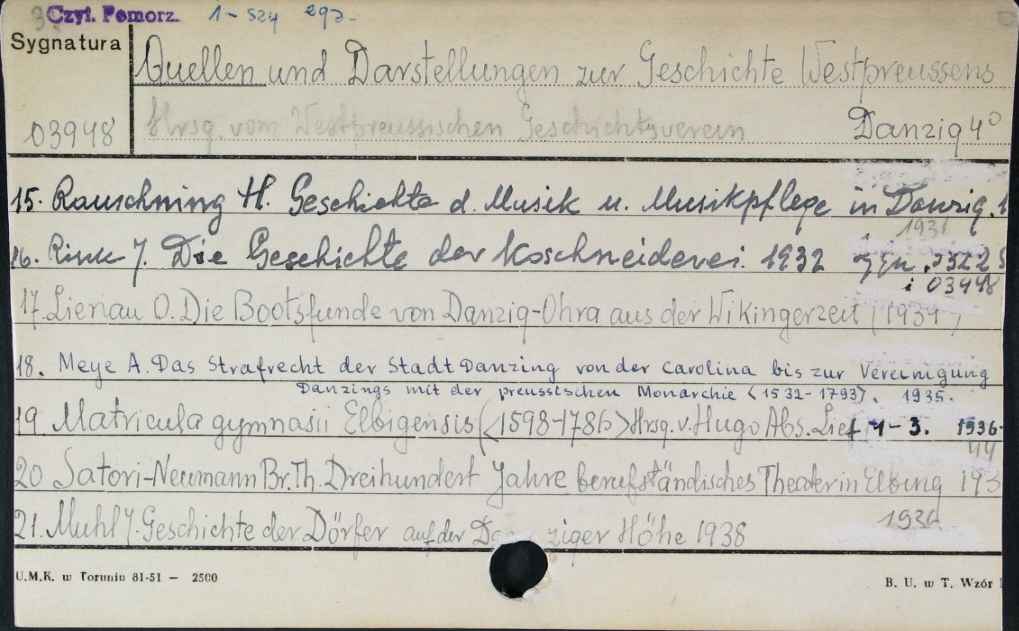 Czyt. Pomorz. 1-524 egz.
Sygnatura
Quellen und Darstellungen zur Geschichte Westpreussens
Hrsg. vom Westpreussischen Geschichtsverein
03948
Danzig 4°
15. Rauschning H. Geschichte d. Musik u. Musikpflege in Danzig.
1931
16. Rink J. Die Geschichte der Koschneiderei. 1932
i 03948
17. Lienau O. Die Bootsfunde von Danzig-Ohra aus der Wikingerzeit (1934)
18. Meye A. Das Strafrecht der Stadt Danzing von der Carolina bis zur Vereinigung
Danzings mit der preussischen Monarchie (1532-1793). 1935.
19 Matricula gymnasii Elbigensis (<1598-1786>) Hrsg. v. Hugo Abs. Lief 1-3. 1936-
44
20 Satori-Neumann Br. Th. Dreihundert Jahre berufständisches Theater in Elbing 193
1936
21. Muhl J. Geschichte der Dörfer auf der Danziger Höhe 1938
U.M.K. w Toruniu 81-51 — 2500
B. U. w T. Wzór